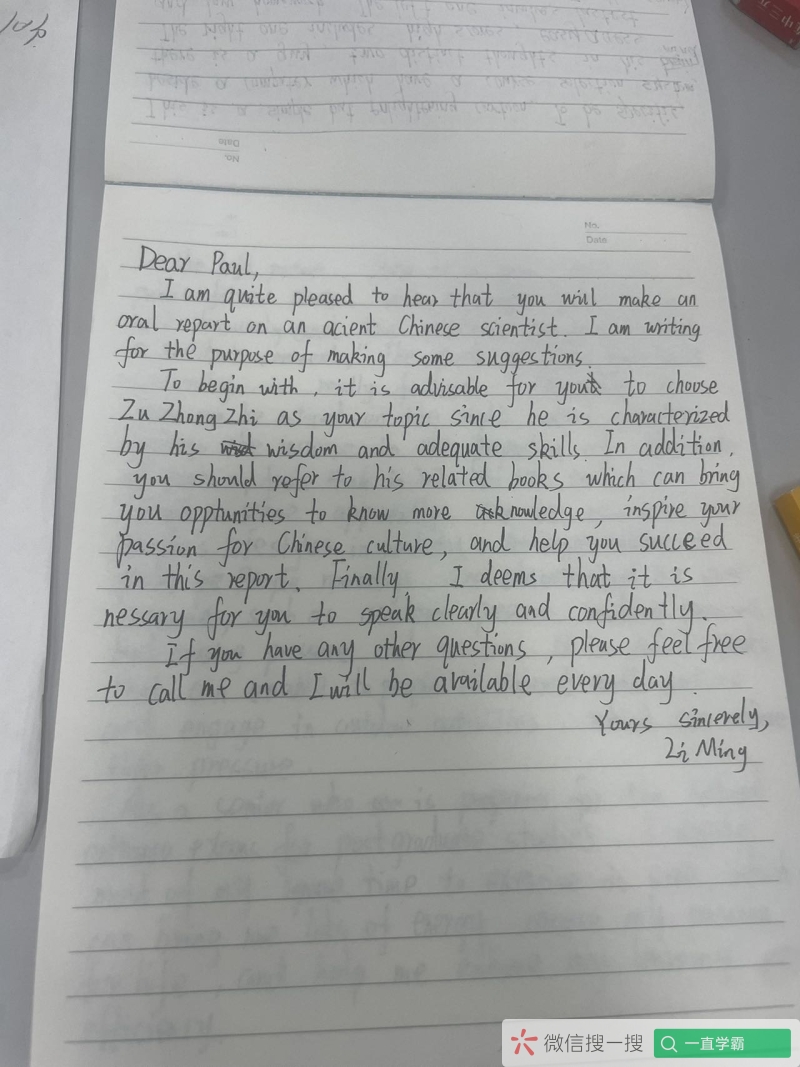 No.
Date
Dear Paul,
I am quite pleased to hear that you will make an
oral repart on an acient Chinese scientist. I am writing
for the purpose of making some suggestions.
To begin with, it is advisable for you to choose
Zu Zhong Zhi as your topic since he is characterized
by his wisdom and adequate skills. In addition,
you should refer to his related books which can bring
you opptunities to know more knowledge, inspire your
passion for Chinese culture, and help you succeed
in this report. Finally, I deems that it is
nessary for you to speak clearly and confidently.
If you have any other questions, please feel free
to call me and I will be available every day.
Yours sincerely,
Li Ming
微信搜一搜
一直学霸